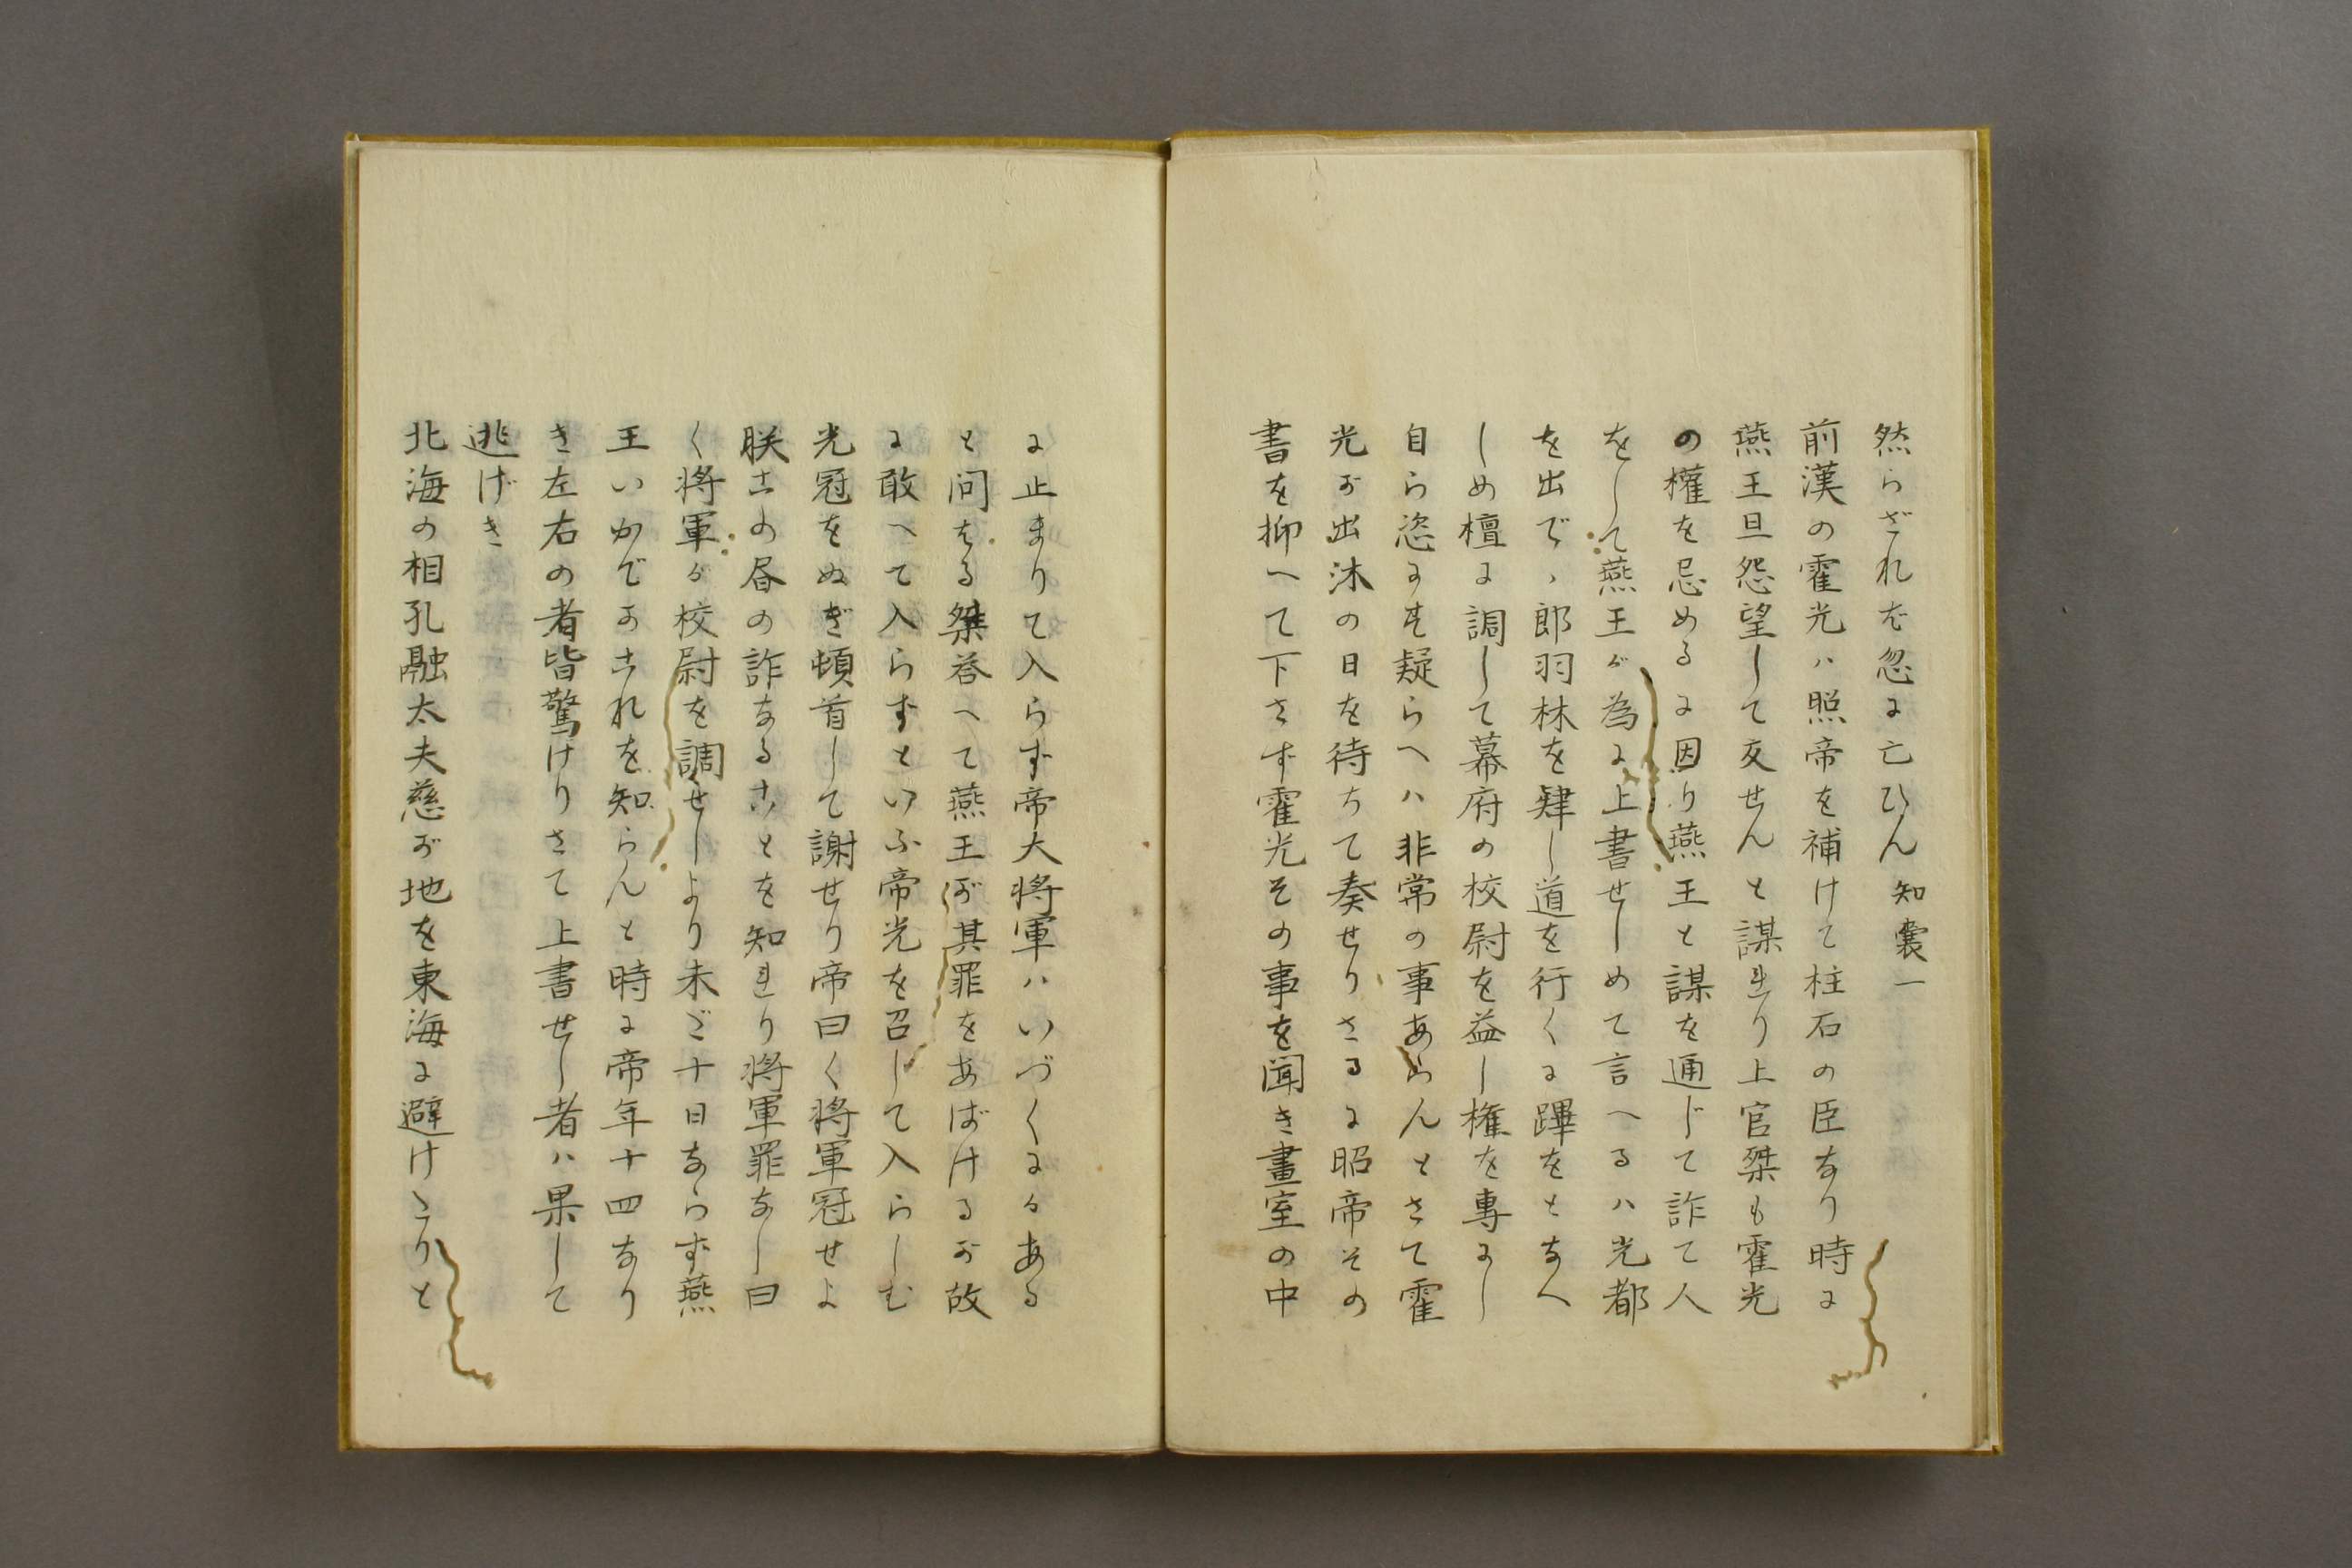 然らざれば忽に亡ひん 知囊一
前漢の霍光ハ照帝を補けて柱石の臣なり時に
燕王旦怨望して反せんと謀れり上官桀も霍光
の權を忌めるに因り燕王と謀を通じて詐て人
をして燕王が為に上書せしめて言へるハ光都
を出で、郎羽林を肄し道を行くに蹕をとなへ
しめ檀に調して幕府の校尉を益し権を専にし
自ら恣にす疑らへハ非常の事あらんとさて霍
光が出沐の日を待ちて奏せりさるに昭帝その
書を抑へて下さず霍光その事を聞き畫室の中
に止まりて入らず帝大将軍ハいづくにかある
と問はる桀荅へて燕王が其罪をあばけるが故
に敢へて入らずといふ帝光を召して入らしむ
光冠をぬぎ頓首して謝せり帝曰く將軍冠せよ
朕この昏の詐なることを知れり将軍罪なし曰
く將軍が校尉を調せしより未ご十日ならず燕
王いかでかこれを知らんと時に帝年十四なり
き左右の者皆驚けりさて上書せし者ハ果して
逃げき
北海の相孔融太夫慈が地を東海に避けゝりと